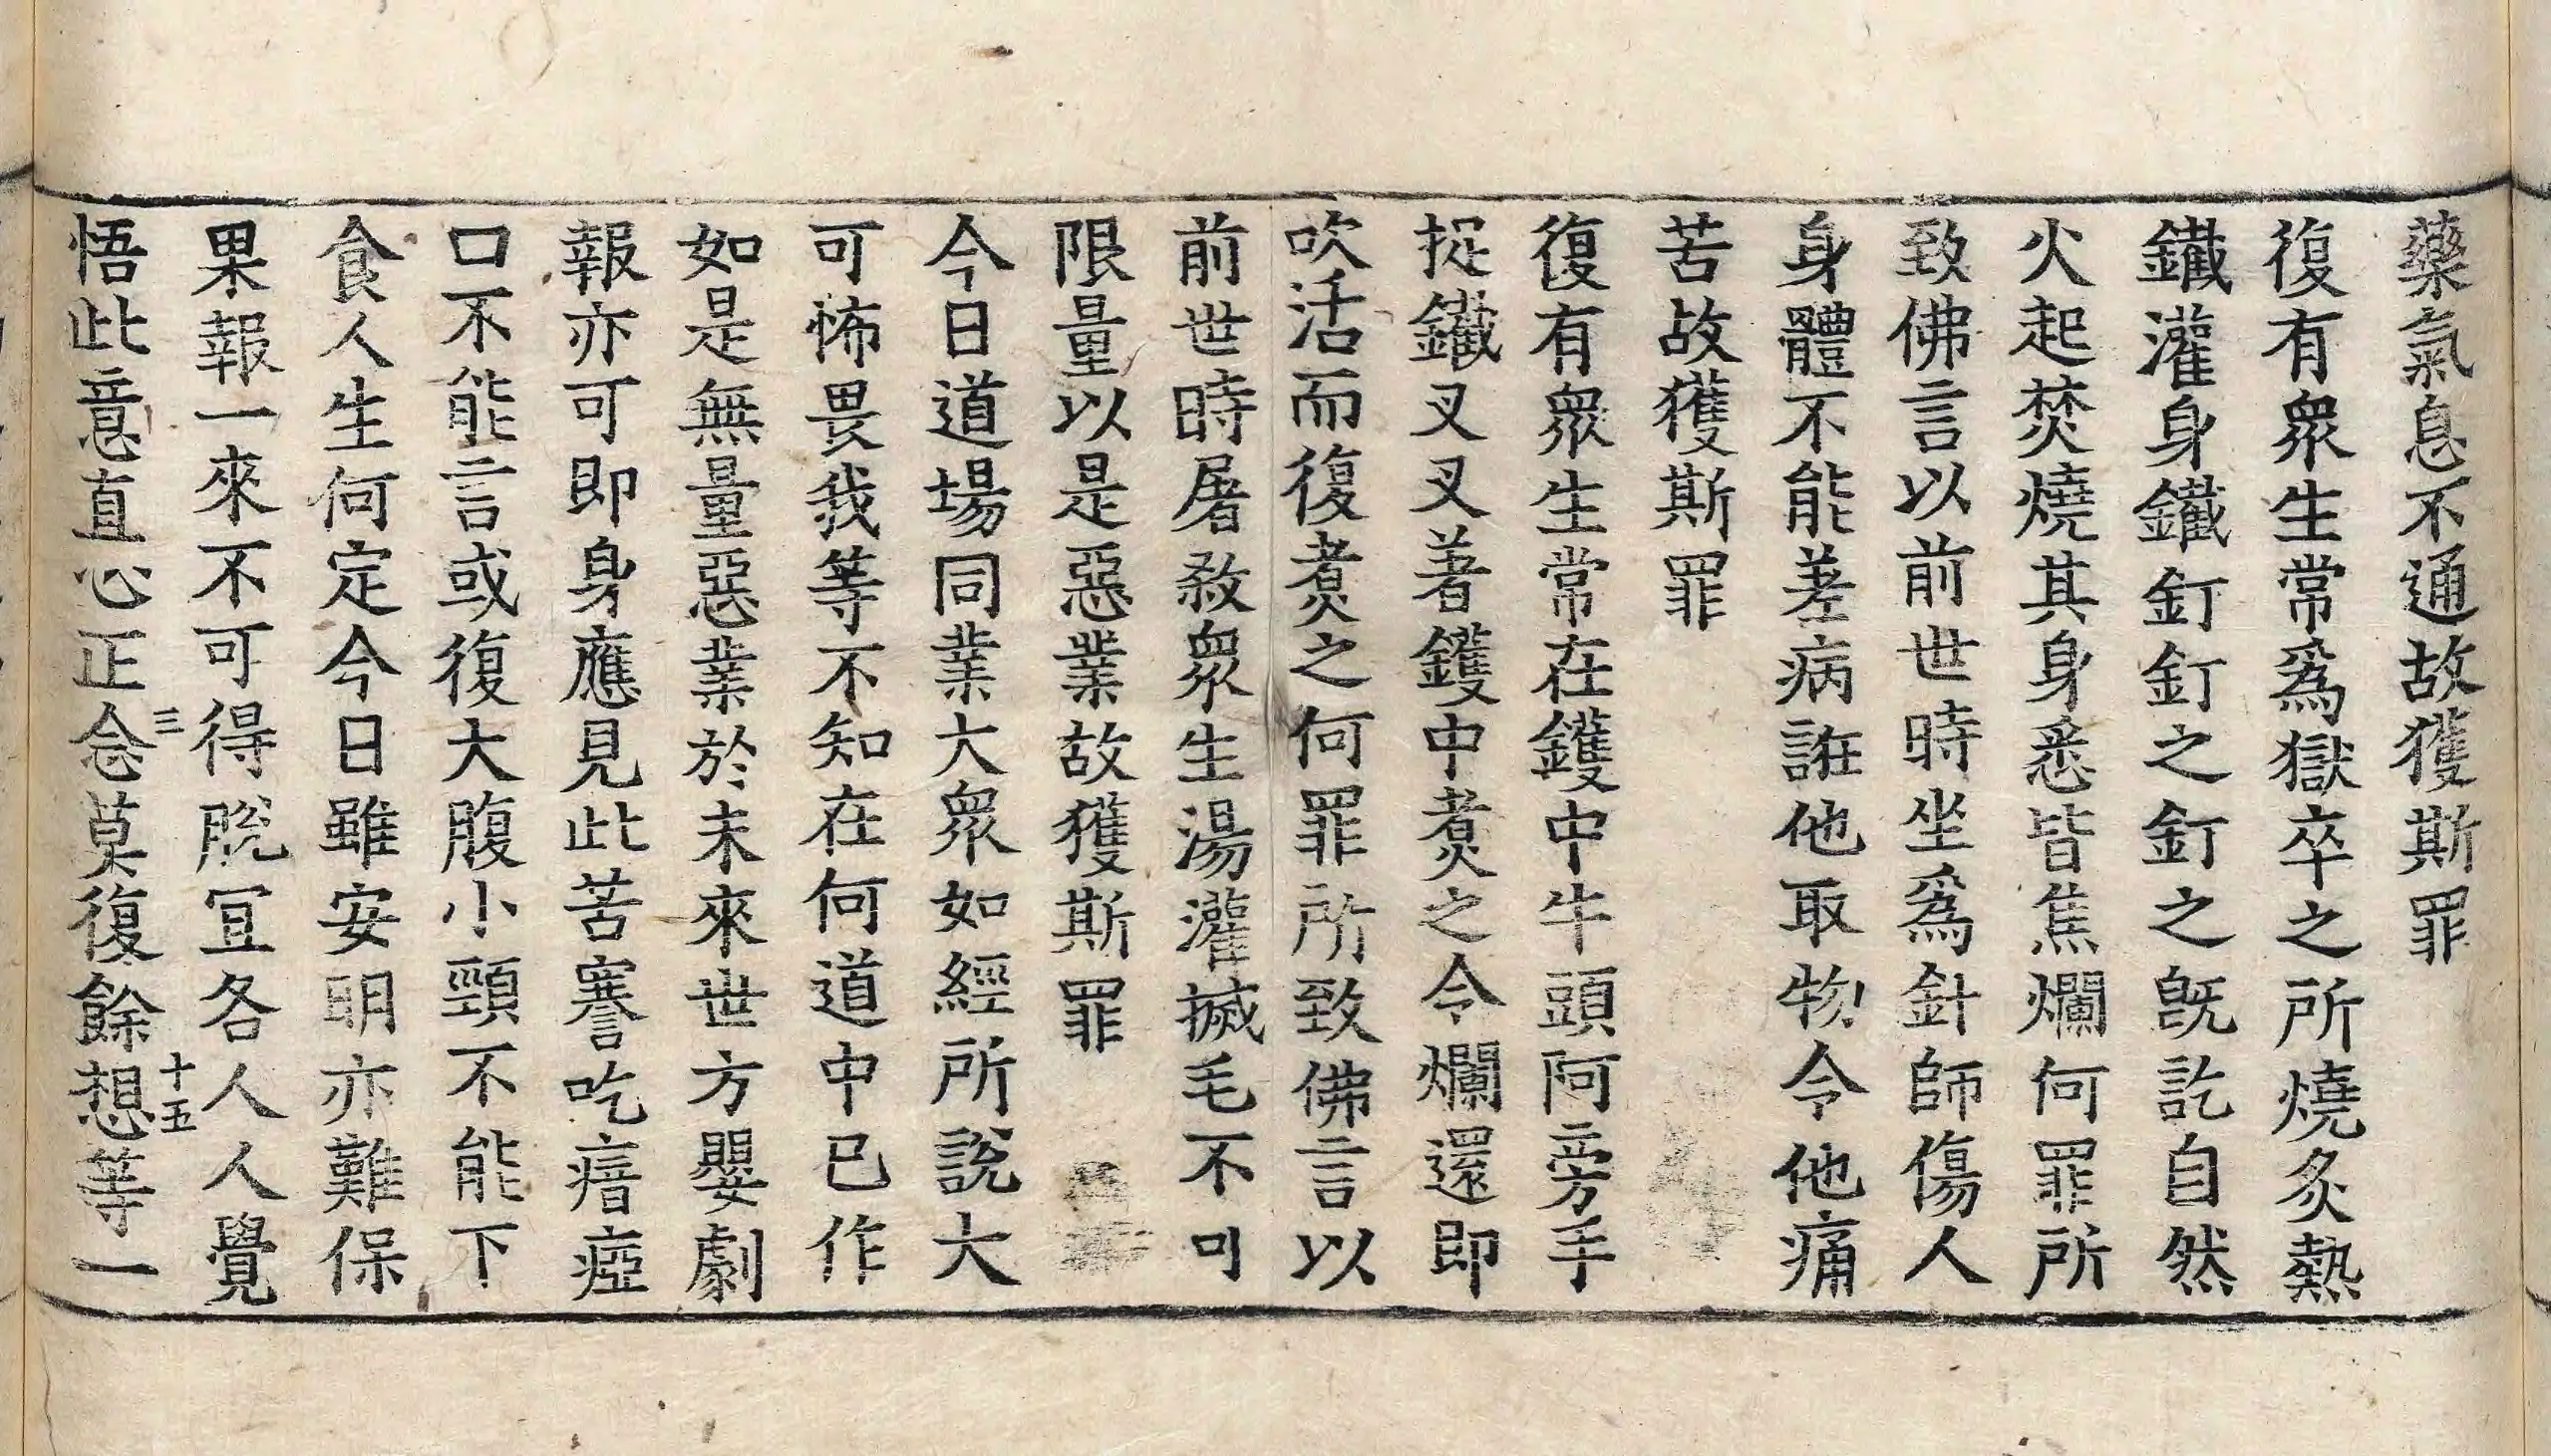 藥氣息不通故獲斯罪
復有衆生常爲獄卒之所燒炙熱
鐵灌身鐵釘釘之釘之旣訖自然
火起焚燒其身悉皆焦爛何罪所
致佛言以前世時坐爲針師傷人
身體不能差病誑他取物令他痛
苦故獲斯罪
復有衆生常在鑊中牛頭阿旁手
捉鐵叉叉著鑊中煮之令爛還即
吹活而復煮之何罪所致佛言以
前世時屠殺衆生湯灌搣毛不可
限量以是惡業故獲斯罪
今日道場同業大衆如經所說大
可怖畏我等不知在何道中已作
如是無量惡業於未來世方嬰劇
報亦可即身應見此苦謇吃瘖瘂
口不能言或復大腹小頸不能下
食人生何定今日雖安明亦難保
果報一來不可得脫宜各人人覺
悟此意直心正念莫復餘想等一
三
十五